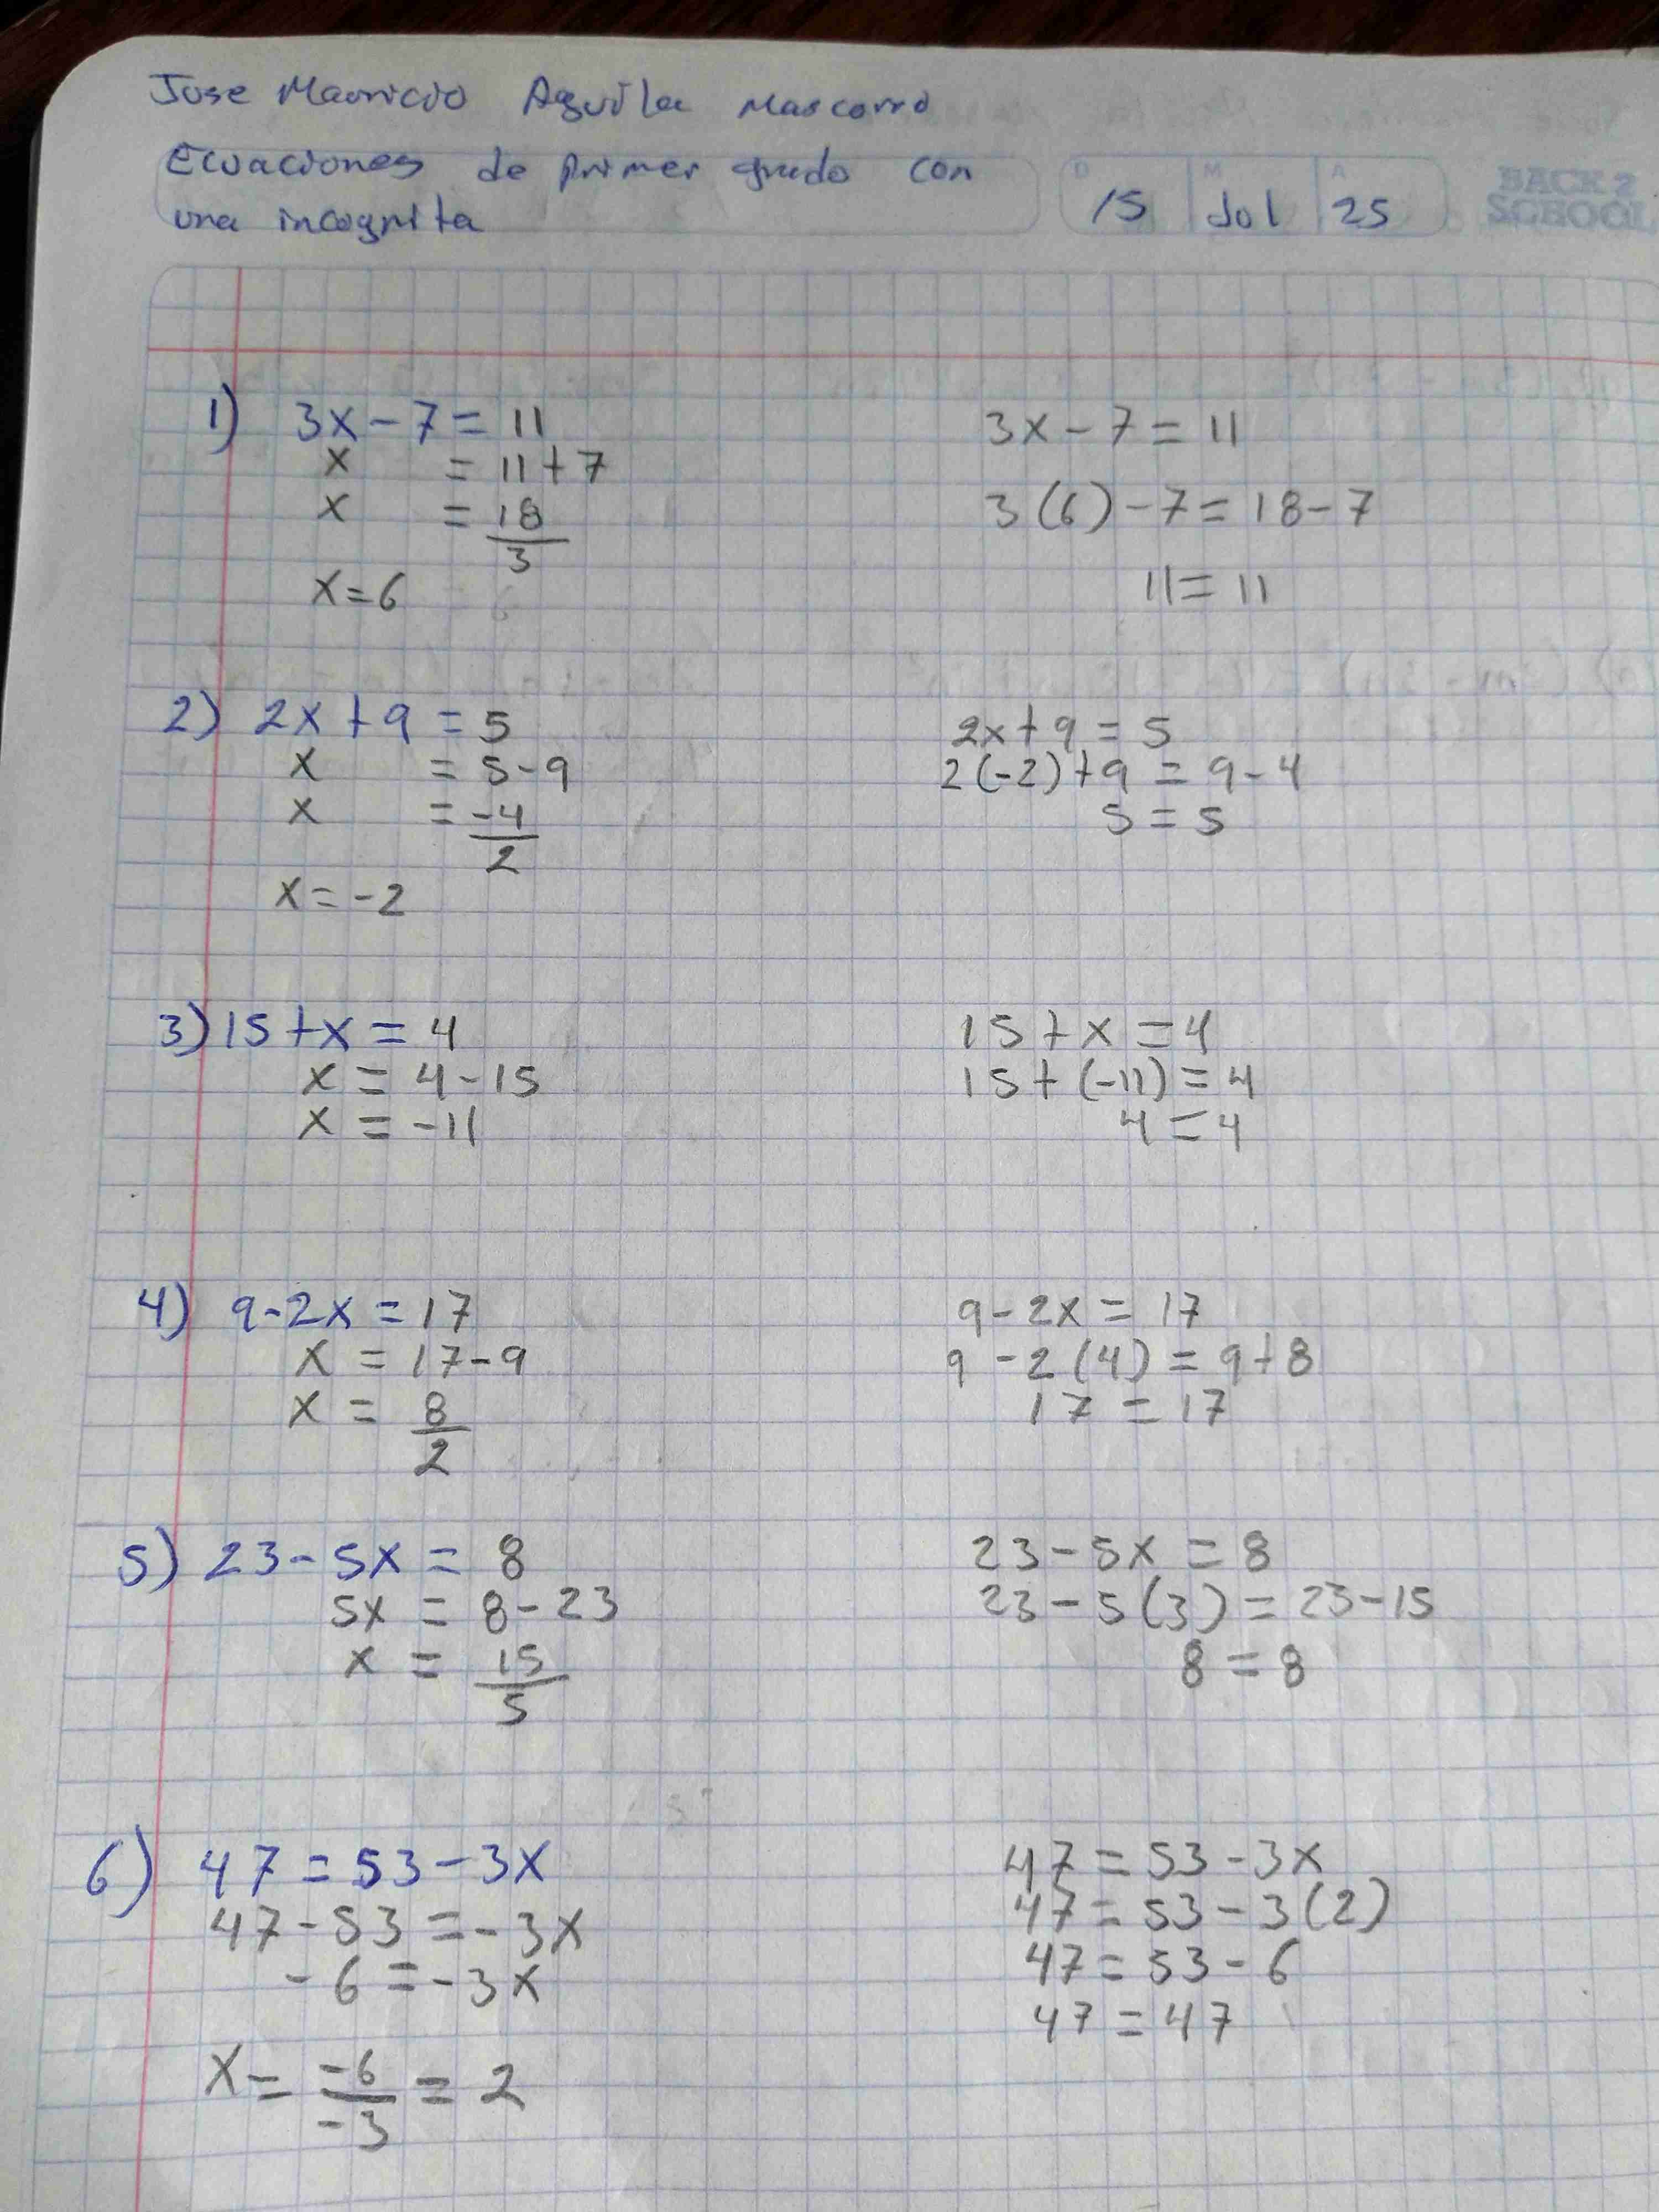 Jose Mauricio Aguila Mascorro
Ecuaciones de primer grado con
una incognita
D M A
15 Jul 25
BACK 2
SCHOOL
1) 3x - 7 = 11
x = 11 + 7
x = 18
3
x = 6
3x - 7 = 11
3(6) - 7 = 18 - 7
11 = 11
2) 2x + 9 = 5
x = 5 - 9
x = -4
2
x = -2
2x + 9 = 5
2(-2) + 9 = 9 - 4
5 = 5
3) 15 + x = 4
x = 4 - 15
x = -11
15 + x = 4
15 + (-11) = 4
4 = 4
4) 9 - 2x = 17
x = 17 - 9
x = 8
2
9 - 2x = 17
9 - 2(4) = 9 + 8
17 = 17
5) 23 - 5x = 8
5x = 8 - 23
x = 15
5
23 - 5x = 8
23 - 5(3) = 23 - 15
8 = 8
6) 47 = 53 - 3x
47 - 53 = -3x
-6 = -3x
x = -6 = 2
-3
47 = 53 - 3x
47 = 53 - 3(2)
47 = 53 - 6
47 = 47